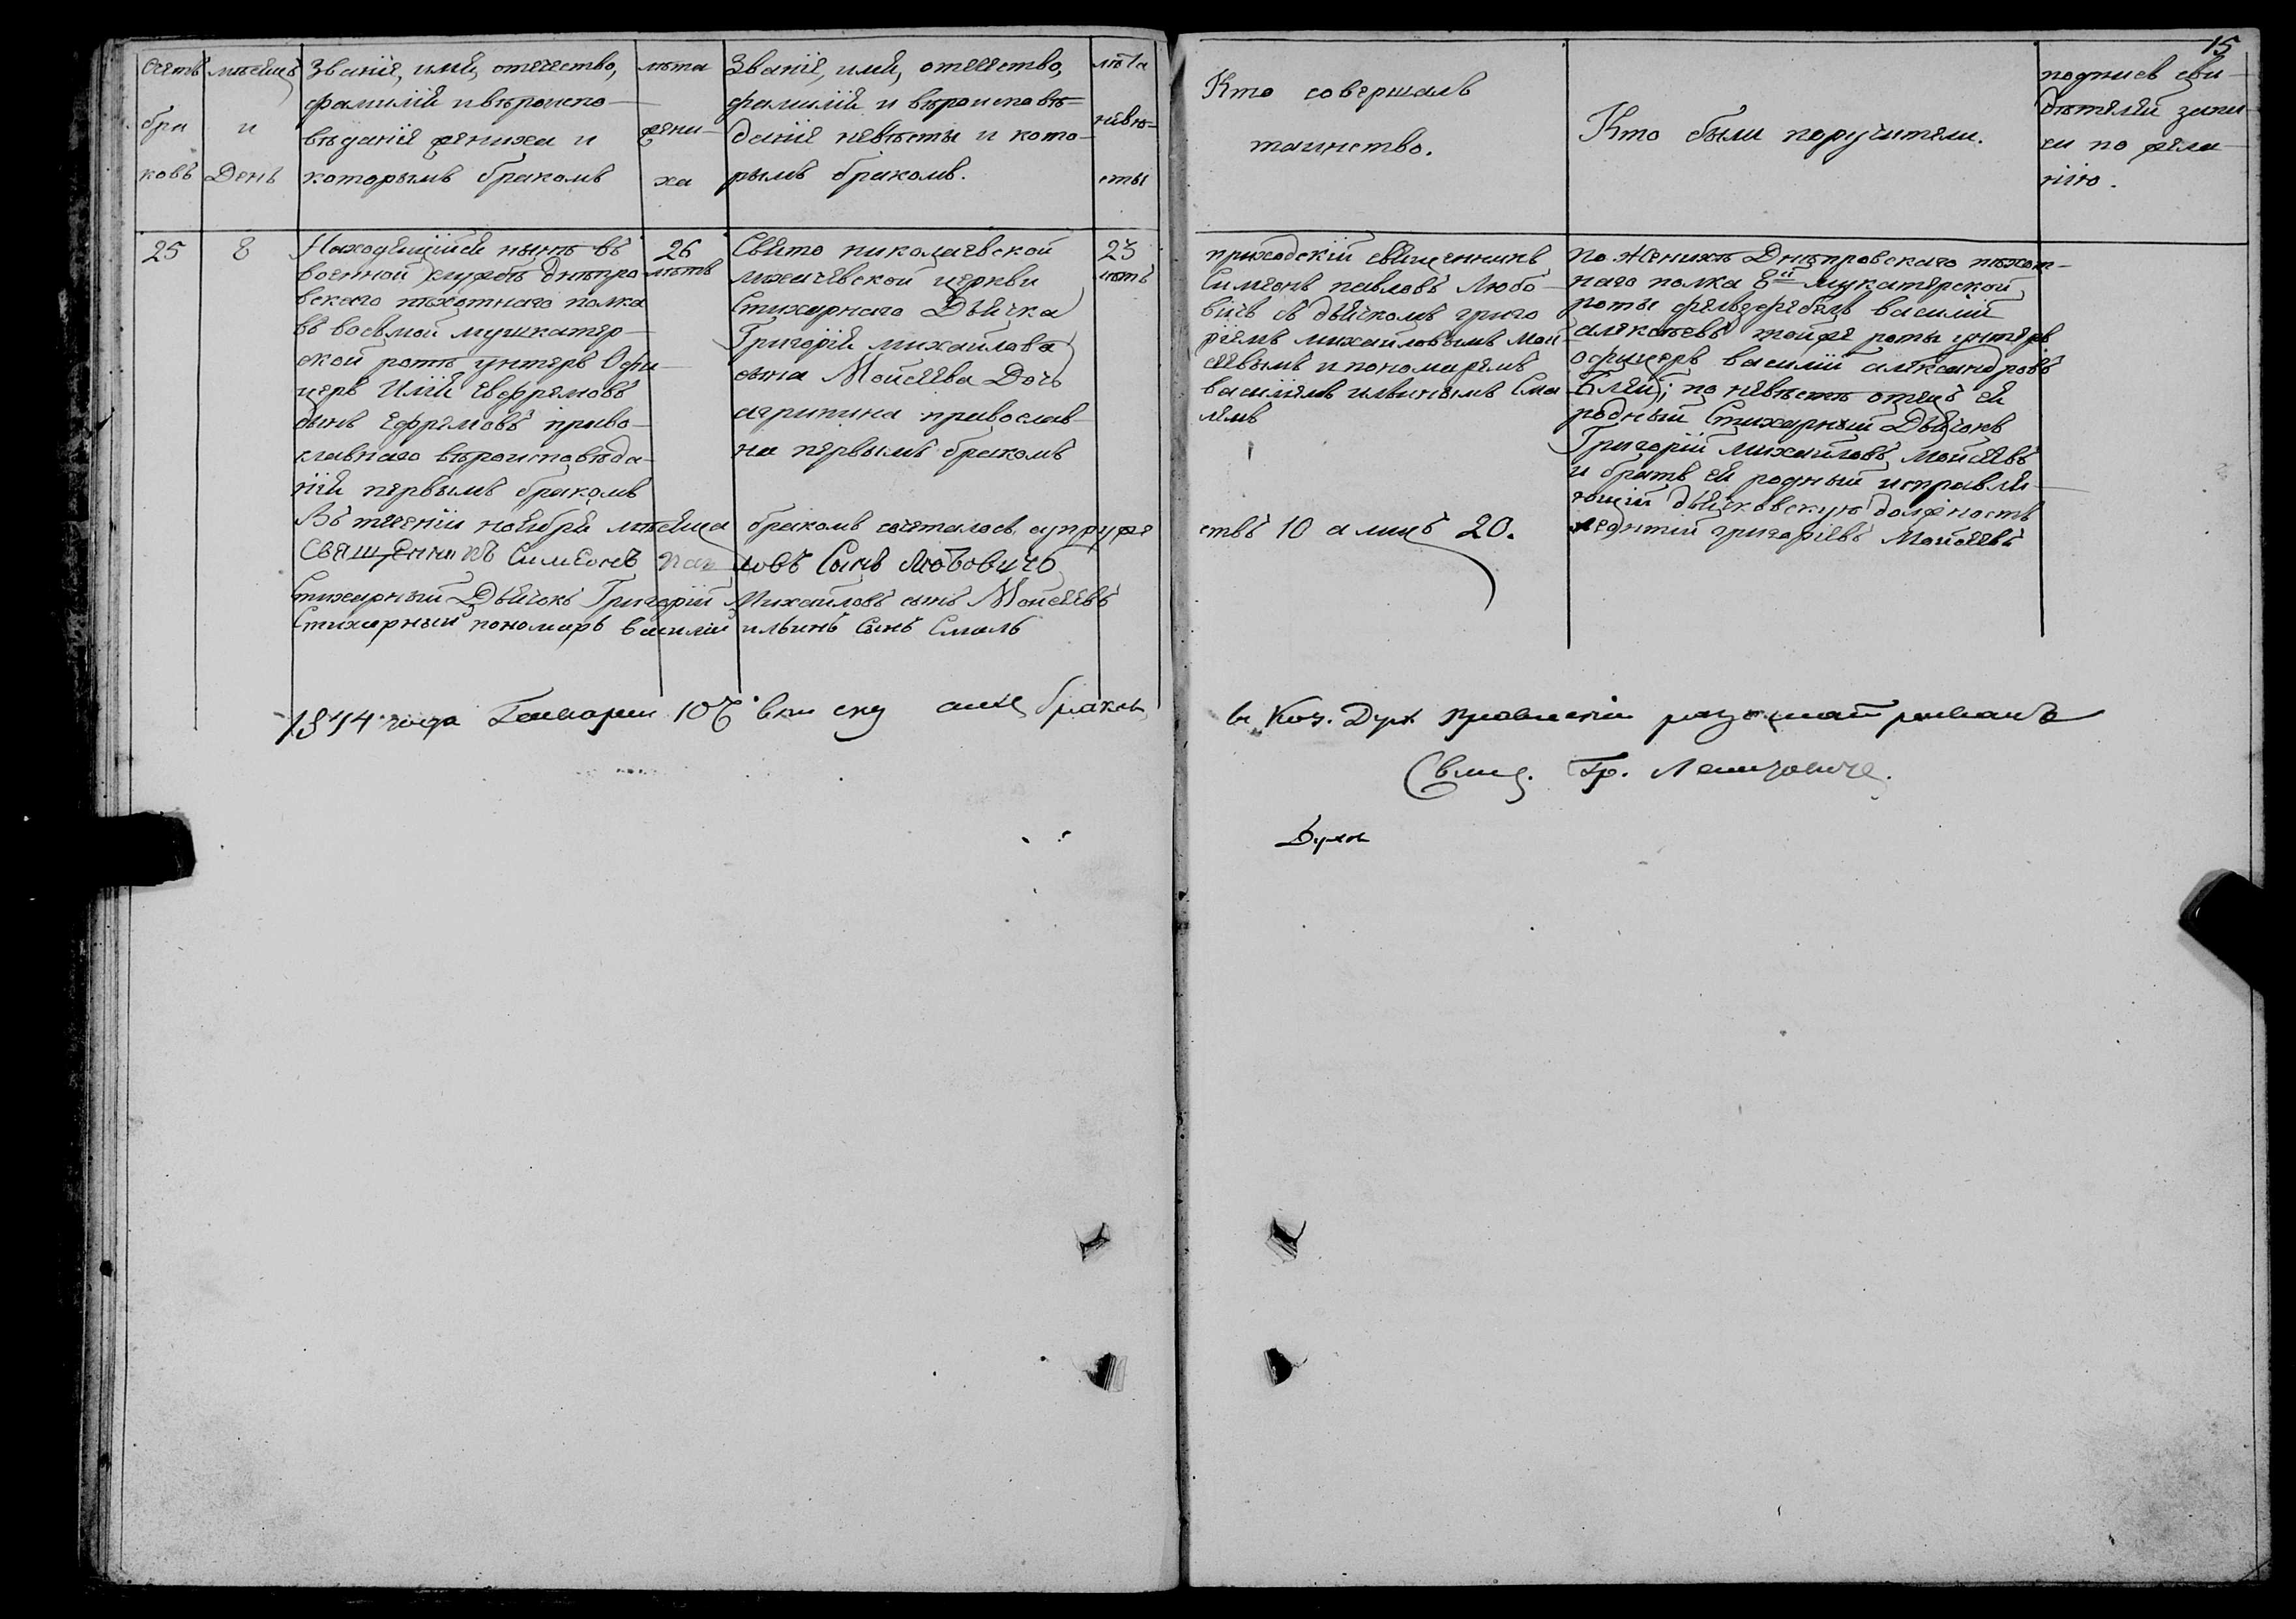 15
Счетъ
бра
ковъ
мѣсяцъ
и
День
Званіе, имя, отечество,
фамилія и вѣроиспо-
вѣданіе жениха и
которымъ бракомъ
лѣта
жени-
ха
Званіе, имя, отечество,
фамилія и вѣроисповѣ-
даніе невѣсты и кото-
рымъ бракомъ.
лѣта
невѣ-
сты
Кто совершалъ
таинство.
Кто были поручители.
подпись сви-
дѣтелей запи
си по жела-
нію.
25
8
Находящійся нынѣ въ
военной службѣ днѣпро
вскаго пѣхотнаго полка
въ восьмой мушкатер-
ской ротѣ унтеръ Офи-
церъ Илія Евфремовъ
сынъ Ефремовъ право-
славнаго вѣроисповѣда-
нія первымъ бракомъ
26
лѣтъ
Свято николаевской
церкви
Стихарнаго Дьячка
Григорія михайлова
сына Моисеева Дочь
агрипина православ-
на первымъ бракомъ
23
лѣтъ
приходскій священникъ
Симеонъ павловъ Любо-
вичъ съ дьячкомъ григо
ріемъ михайловымъ Мои
сеевымъ и пономаремъ
василіемъ ильинымъ Сма
лемъ
по Женихѣ Днѣпровскаго пѣхот-
наго полка 8й мукатерской
роты фельдфебель василій
алексѣевъ тойже роты унтеръ
офицеръ василій александровъ
; по невѣстѣ отецъ ея
родный Стихарный Дьячокъ
Григорій Михайловъ Моисеевъ
и братъ ея родный исправля-
ющій дьячковскую должность
леонтій григоріевъ Моисеевъ
Въ теченіи ноября мѣсяца бракомъ сочеталось супруже
ствъ 10 а лицъ 20.
Священникъ Симеонъ Павловъ Сынъ Любовичъ
Стихарный Дьячокъ Григорій Михайловъ сынъ Моисеевъ
Стихарный пономарь василій ильинъ Сынъ Смаль
1844 года Генваря 10 брака
Дух. Правленіи разсматривалъ
Свящ. Гр.
Духо